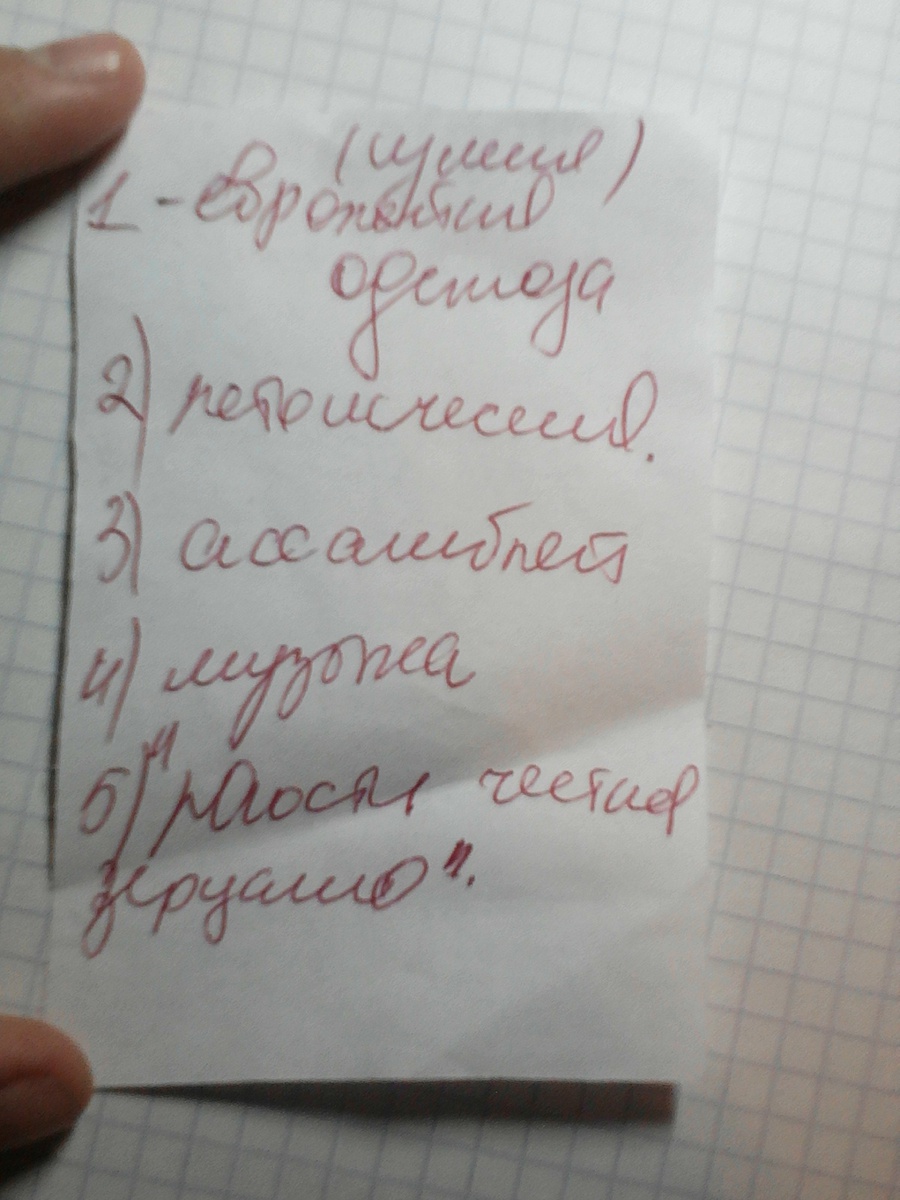 1 - европейская
одежда
2) летоисчесение.
3) ассамблеи
4) музыка
5) "Юности честное
зерцало".